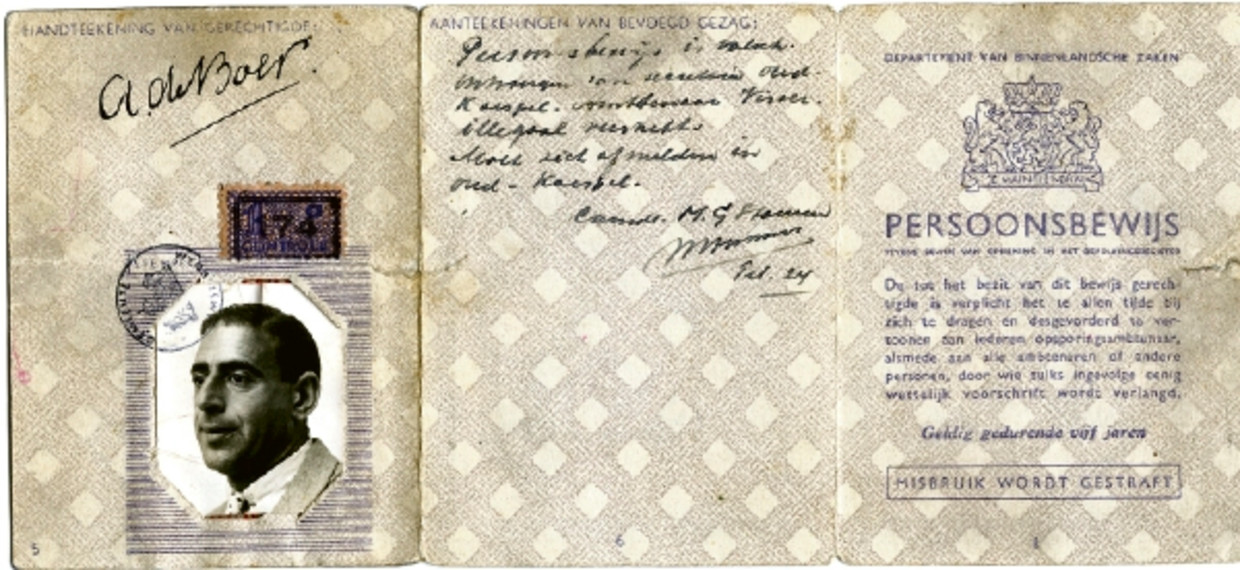 HANDTEEKENING VAN GERECHTIGDE:
A. de Boer.
CONTROLE
5
AANTEEKENINGEN VAN BEVOEGD GEZAG:
Persoonsbewijs is valsch.
Ontvangen van secretarie Oud-
Karspel. Ambtenaar Visser.
illegaal verstrekt.
Moet zich afmelden in
Oud-Karspel.
M. G.
Feb. 24
6
DEPARTEMENT VAN BINNENLANDSCHE ZAKEN
JE MAINTIENDRAI
PERSOONSBEWIJS
TEVENS BEWIJS VAN OPNEMING IN HET BEVOLKINGSREGISTER
De tot het bezit van dit bewijs gerech-
tigde is verplicht het te allen tijde bij
zich te dragen en desgevorderd te ver-
toonen aan iederen opsporingsambtenaar,
alsmede aan alle ambtenaren of andere
personen, door wie zulks ingevolge eenig
wettelijk voorschrift wordt verlangd.
Geldig gedurende vijf jaren
MISBRUIK WORDT GESTRAFT
1